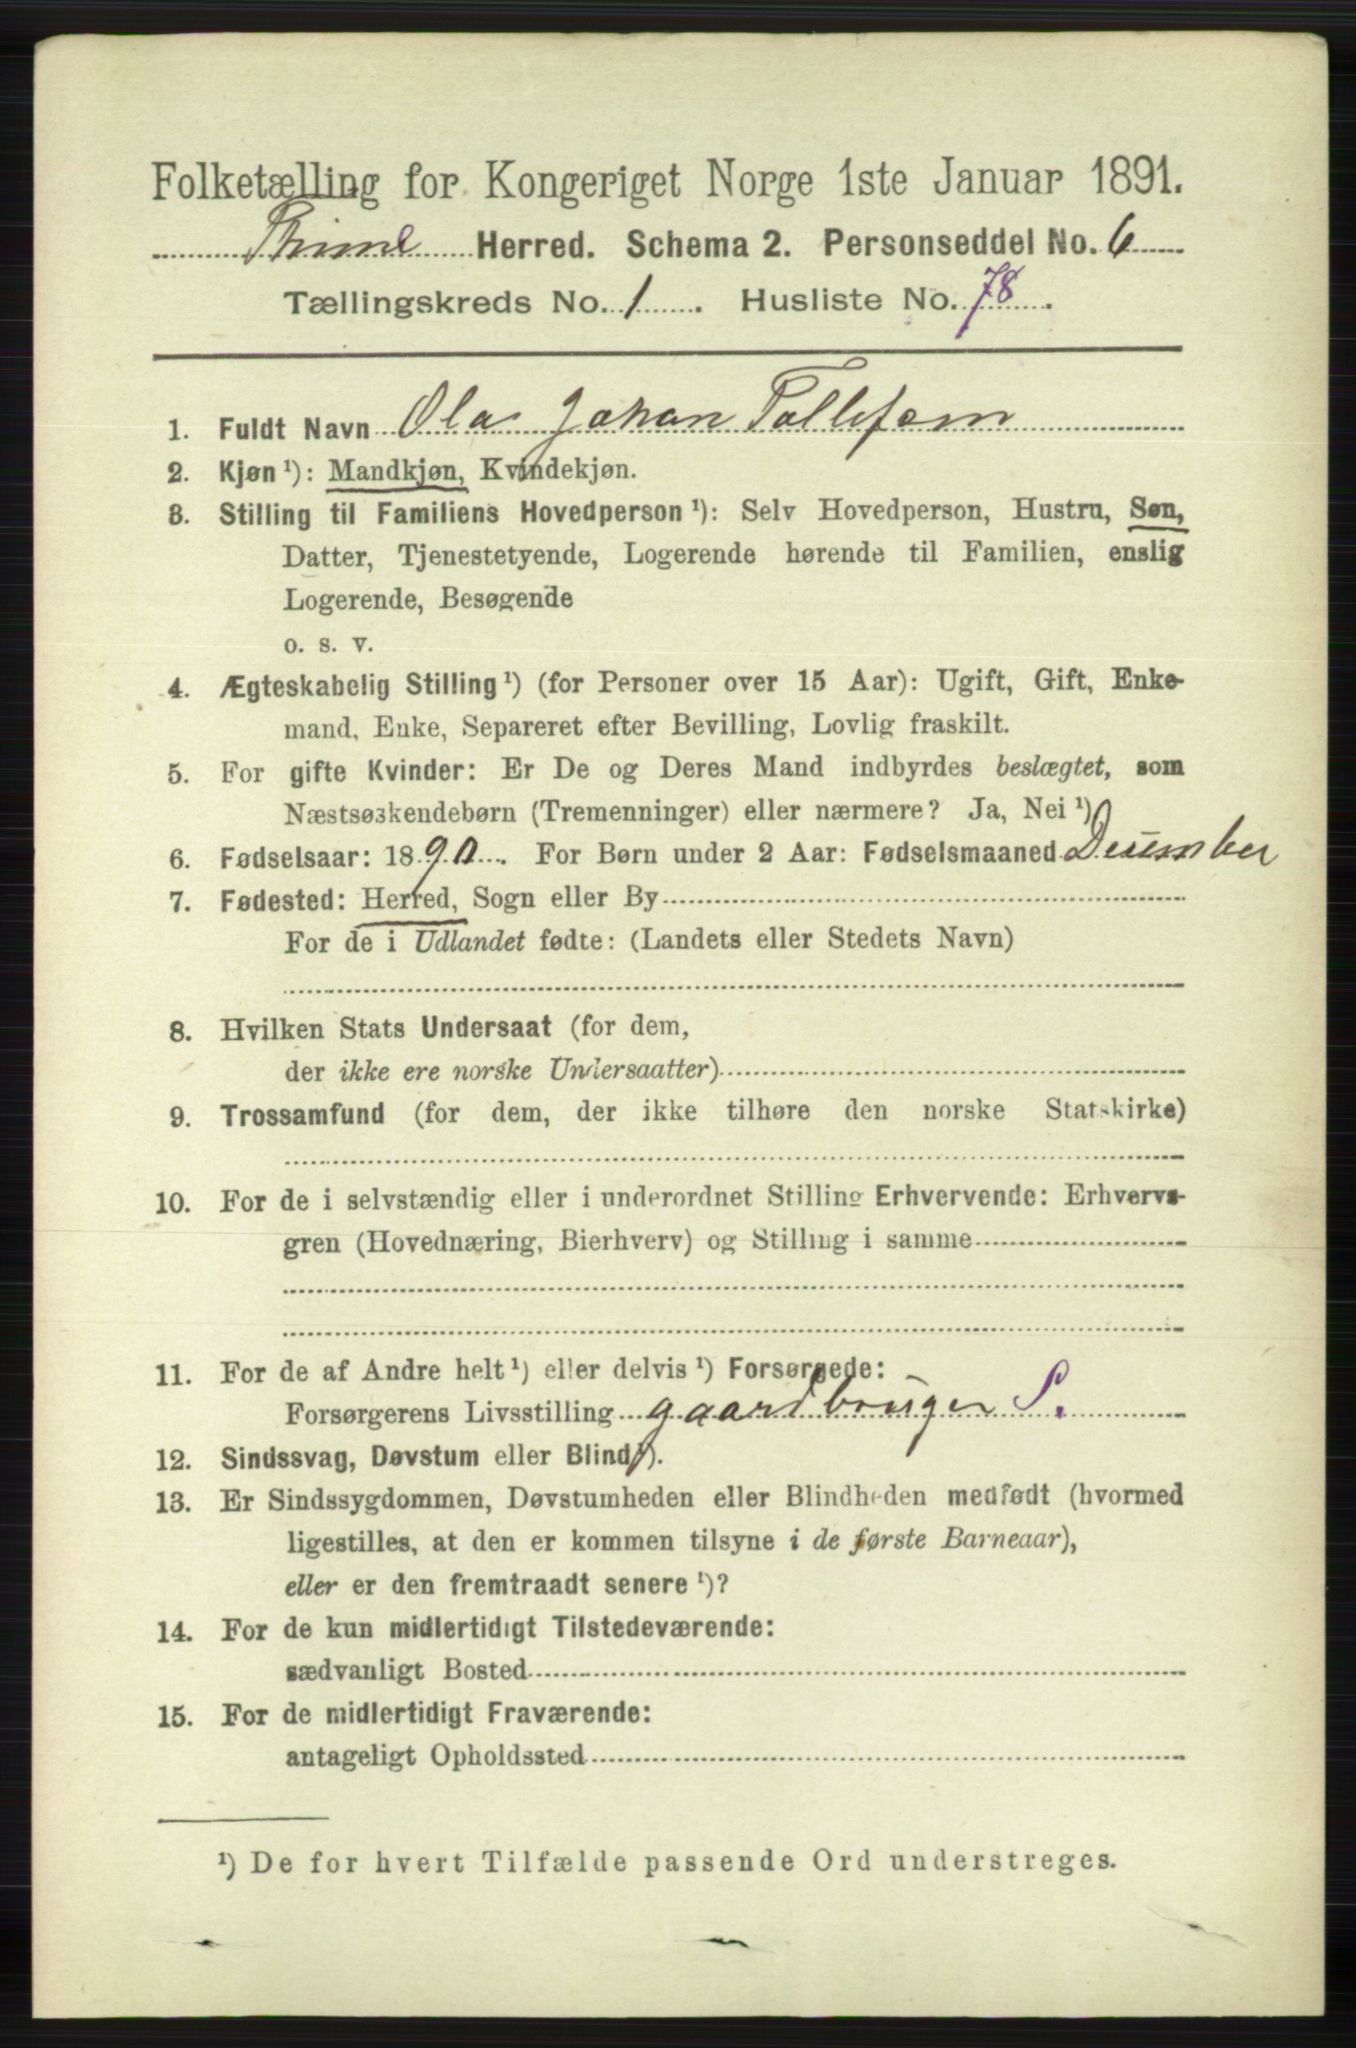 Folketælling for Kongeriget Norge 1ste Januar 1891.
Thime Herred. Schema 2. Personseddel No. 6
Tællingskreds No. 1. Husliste No. 78.
1. Fuldt Navn Ola Johan Tollefsen
2. Kjøn ¹): Mandkjøn, Kvindekjøn.
3. Stilling til Familiens Hovedperson ¹): Selv Hovedperson, Hustru, Søn,
Datter, Tjenestetyende, Logerende hørende til Familien, enslig
Logerende, Besøgende
o. s. v.
4. Ægteskabelig Stilling ¹) (for Personer over 15 Aar): Ugift, Gift, Enke-
mand, Enke, Separeret efter Bevilling, Lovlig fraskilt.
5. For gifte Kvinder: Er De og Deres Mand indbyrdes beslægtet, som
Næstsøskendebørn (Tremenninger) eller nærmere? Ja, Nei ¹)
6. Fødselsaar: 1890. For Børn under 2 Aar: Fødselsmaaned December
7. Fødested: Herred, Sogn eller By
For de i Udlandet fødte: (Landets eller Stedets Navn)
8. Hvilken Stats Undersaat (for dem,
der ikke ere norske Undersaatter)
9. Trossamfund (for dem, der ikke tilhøre den norske Statskirke)
10. For de i selvstændig eller i underordnet Stilling Erhvervende: Erhvervs-
gren (Hovednæring, Bierhverv) og Stilling i samme
11. For de af Andre helt ¹) eller delvis ¹) Forsørgede:
Forsørgerens Livsstilling gaardbruger S.
12. Sindssvag, Døvstum eller Blind ¹).
13. Er Sindssygdommen, Døvstumheden eller Blindheden medfødt (hvormed
ligestilles, at den er kommen tilsyne i de første Barneaar),
eller er den fremtraadt senere ¹)?
14. For de kun midlertidigt Tilstedeværende:
sædvanligt Bosted
15. For de midlertidigt Fraværende:
antageligt Opholdssted
¹) De for hvert Tilfælde passende Ord understreges.